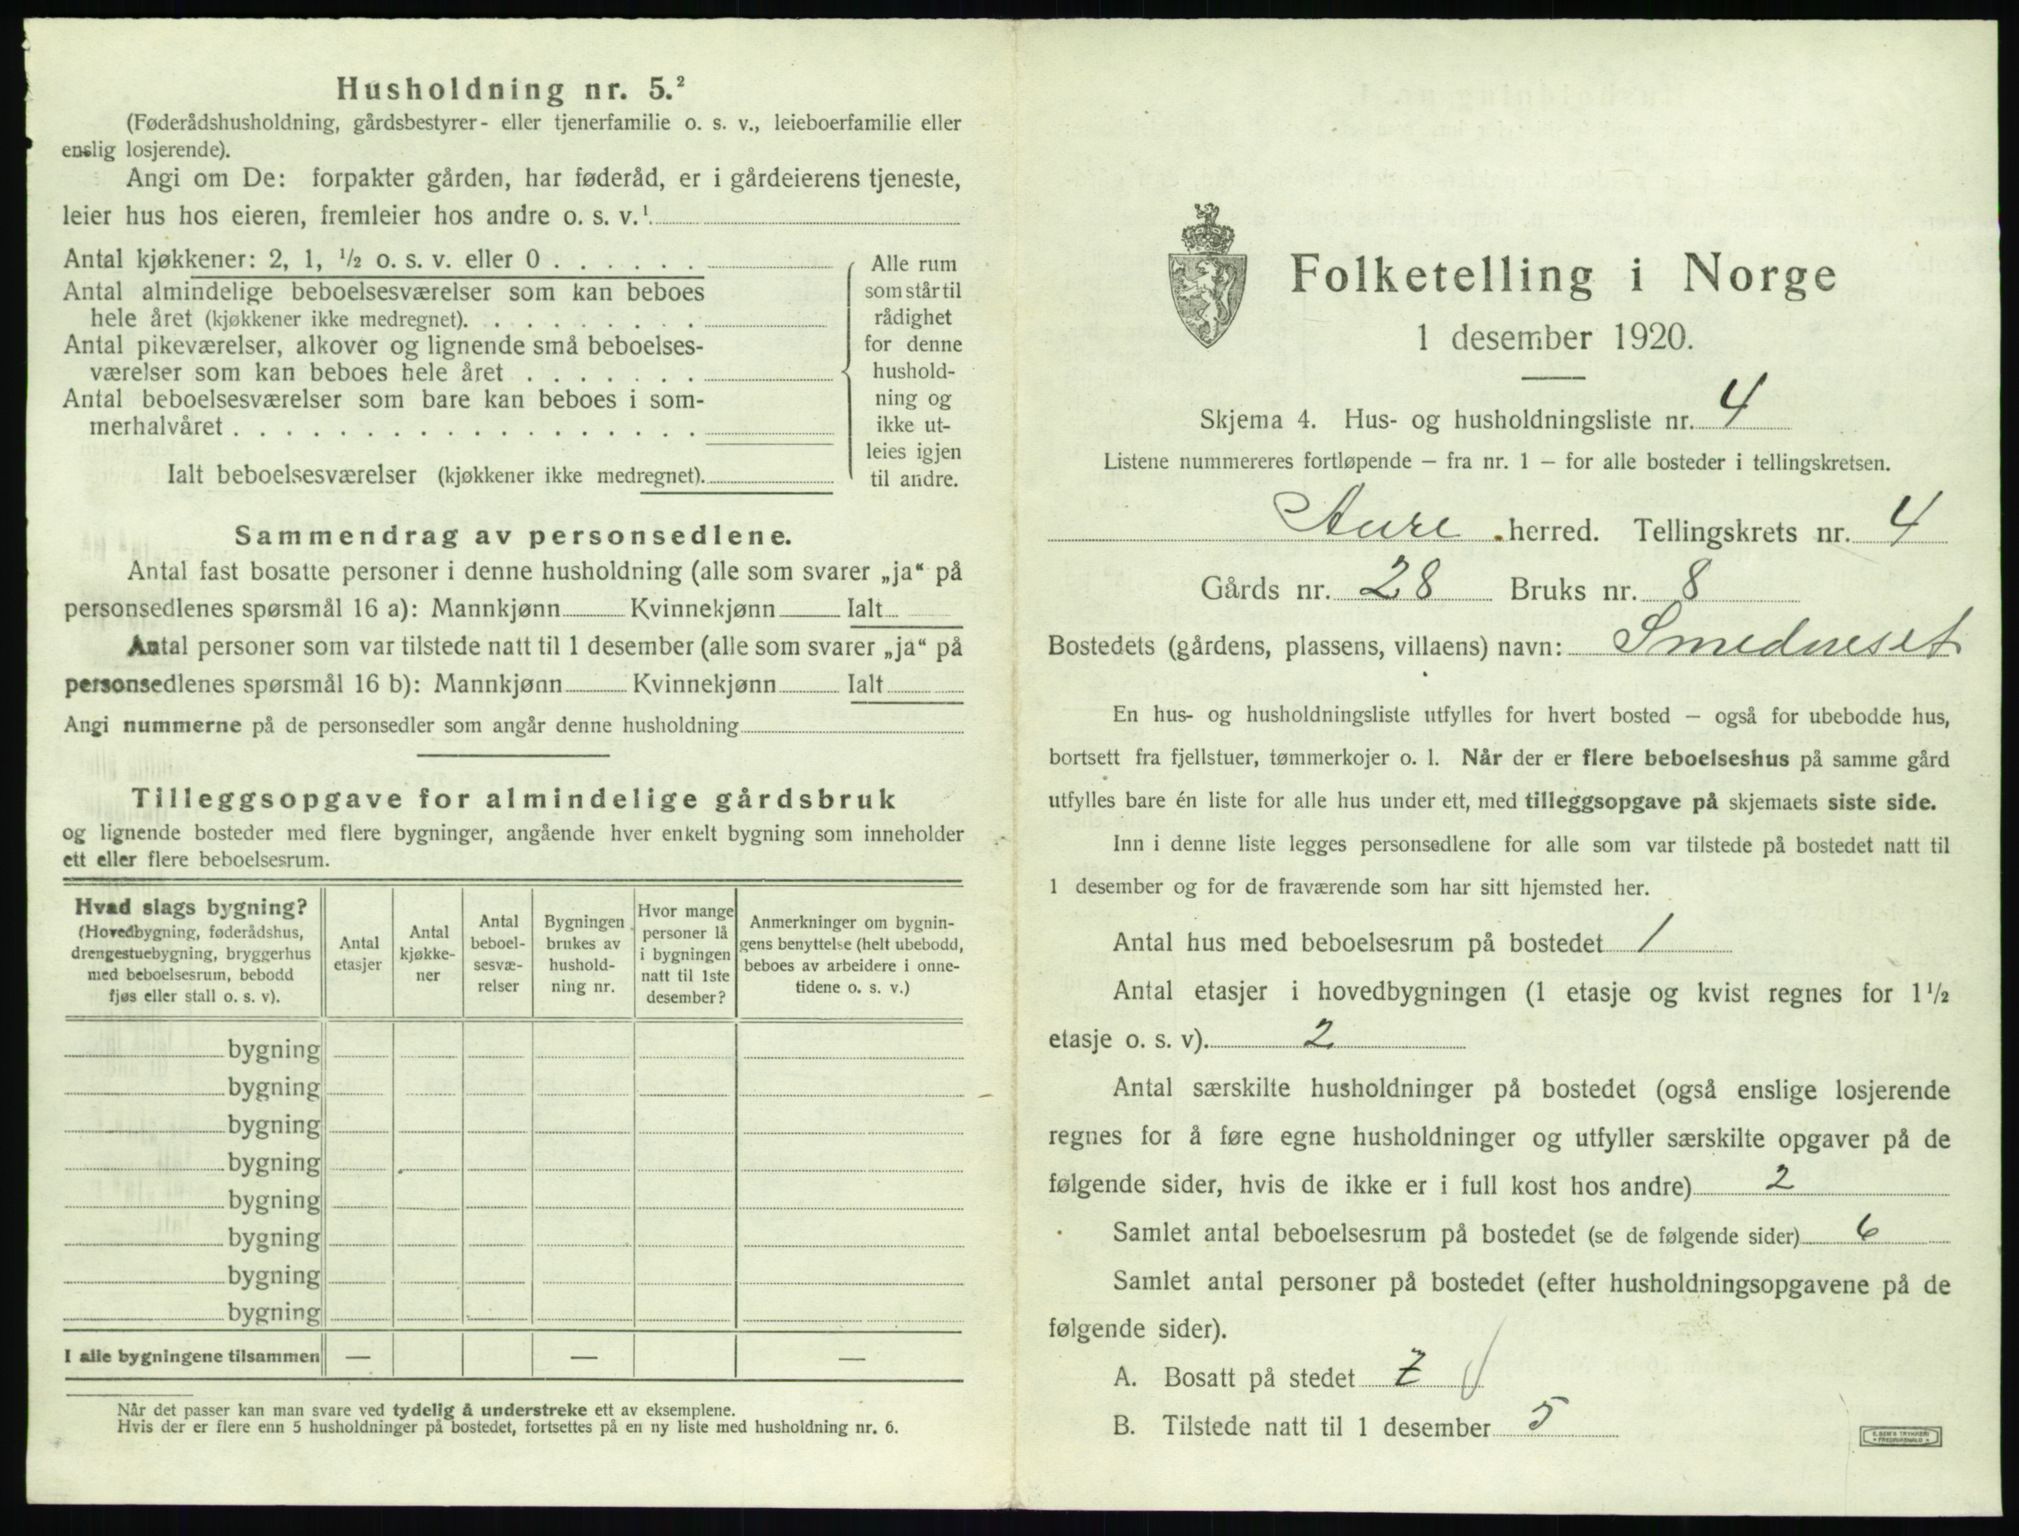 Husholdning nr. 5.²
(Føderådshusholdning, gårdsbestyrer- eller tjenerfamilie o. s. v., leieboerfamilie eller
enslig losjerende).
Angi om De: forpakter gården, har føderåd, er i gårdeierens tjeneste,
leier hus hos eieren, fremleier hos andre o. s. v.¹
Antal kjøkkener: 2, 1, ½ o. s. v. eller 0 . . . . . .
Antal almindelige beboelsesværelser som kan beboes
hele året (kjøkkener ikke medregnet). . . . . . . . .
Antal pikeværelser, alkover og lignende små beboelses-
værelser som kan beboes hele året . . . . . . .
Antal beboelsesværelser som bare kan beboes i som-
merhalvåret . . . . . . . . . . . . . . . . . .
Ialt beboelsesværelser (kjøkkener ikke medregnet).
Alle rum
som står til
rådighet
for denne
hushold-
ning og
ikke ut-
leies igjen
til andre.
Sammendrag av personsedlene.
Antal fast bosatte personer i denne husholdning (alle som svarer „ja“ på
personsedlenes spørsmål 16 a): Mannkjønn Kvinnekjønn Ialt
Antal personer som var tilstede natt til 1 desember (alle som svarer „ja“ på
personsedlenes spørsmål 16 b): Mannkjønn Kvinnekjønn Ialt
Angi nummerne på de personsedler som angår denne husholdning
Tilleggsopgave for almindelige gårdsbruk
og lignende bosteder med flere bygninger, angående hver enkelt bygning som inneholder
ett eller flere beboelsesrum.
Hvad slags bygning?
(Hovedbygning, føderådshus,
drengestuebygning, bryggerhus
med beboelsesrum, bebodd
fjøs eller stall o. s. v).
Antal
etasjer
Antal
kjøkke-
ner
Antal
beboel-
sesvæ-
relser
Bygningen
brukes av
hushold-
ning nr.
Hvor mange
personer lå
i bygningen
natt til 1ste
desember?
Anmerkninger om bygnin-
gens benyttelse (helt ubebodd,
beboes av arbeidere i onne-
tidene o. s. v.)
bygning
bygning
bygning
bygning
bygning
bygning
bygning
bygning
I alle bygningene tilsammen — — —
Når det passer kan man svare ved tydelig å understreke ett av eksemplene.
Hvis der er flere enn 5 husholdninger på bostedet, fortsettes på en ny liste med husholdning nr. 6.
Folketelling i Norge
1 desember 1920.
Skjema 4. Hus- og husholdningsliste nr. 4
Listene nummereres fortløpende – fra nr. 1 – for alle bosteder i tellingskretsen.
Aure herred. Tellingskrets nr. 4
Gårds nr. 28 Bruks nr. 8
Bostedets (gårdens, plassens, villaens) navn: Smedneset
En hus- og husholdningsliste utfylles for hvert bosted – også for ubebodde hus,
bortsett fra fjellstuer, tømmerkojer o. l. Når der er flere beboelseshus på samme gård
utfylles bare én liste for alle hus under ett, med tilleggsopgave på skjemaets siste side.
Inn i denne liste legges personsedlene for alle som var tilstede på bostedet natt til
1 desember og for de fraværende som har sitt hjemsted her.
Antal hus med beboelsesrum på bostedet 1
Antal etasjer i hovedbygningen (1 etasje og kvist regnes for 1½
etasje o. s. v). 2
Antal særskilte husholdninger på bostedet (også enslige losjerende
regnes for å føre egne husholdninger og utfyller særskilte opgaver på de
følgende sider, hvis de ikke er i full kost hos andre) 2
Samlet antal beboelsesrum på bostedet (se de følgende sider) 6
Samlet antal personer på bostedet (efter husholdningsopgavene på de
følgende sider).
A. Bosatt på stedet 7
B. Tilstede natt til 1 desember 5